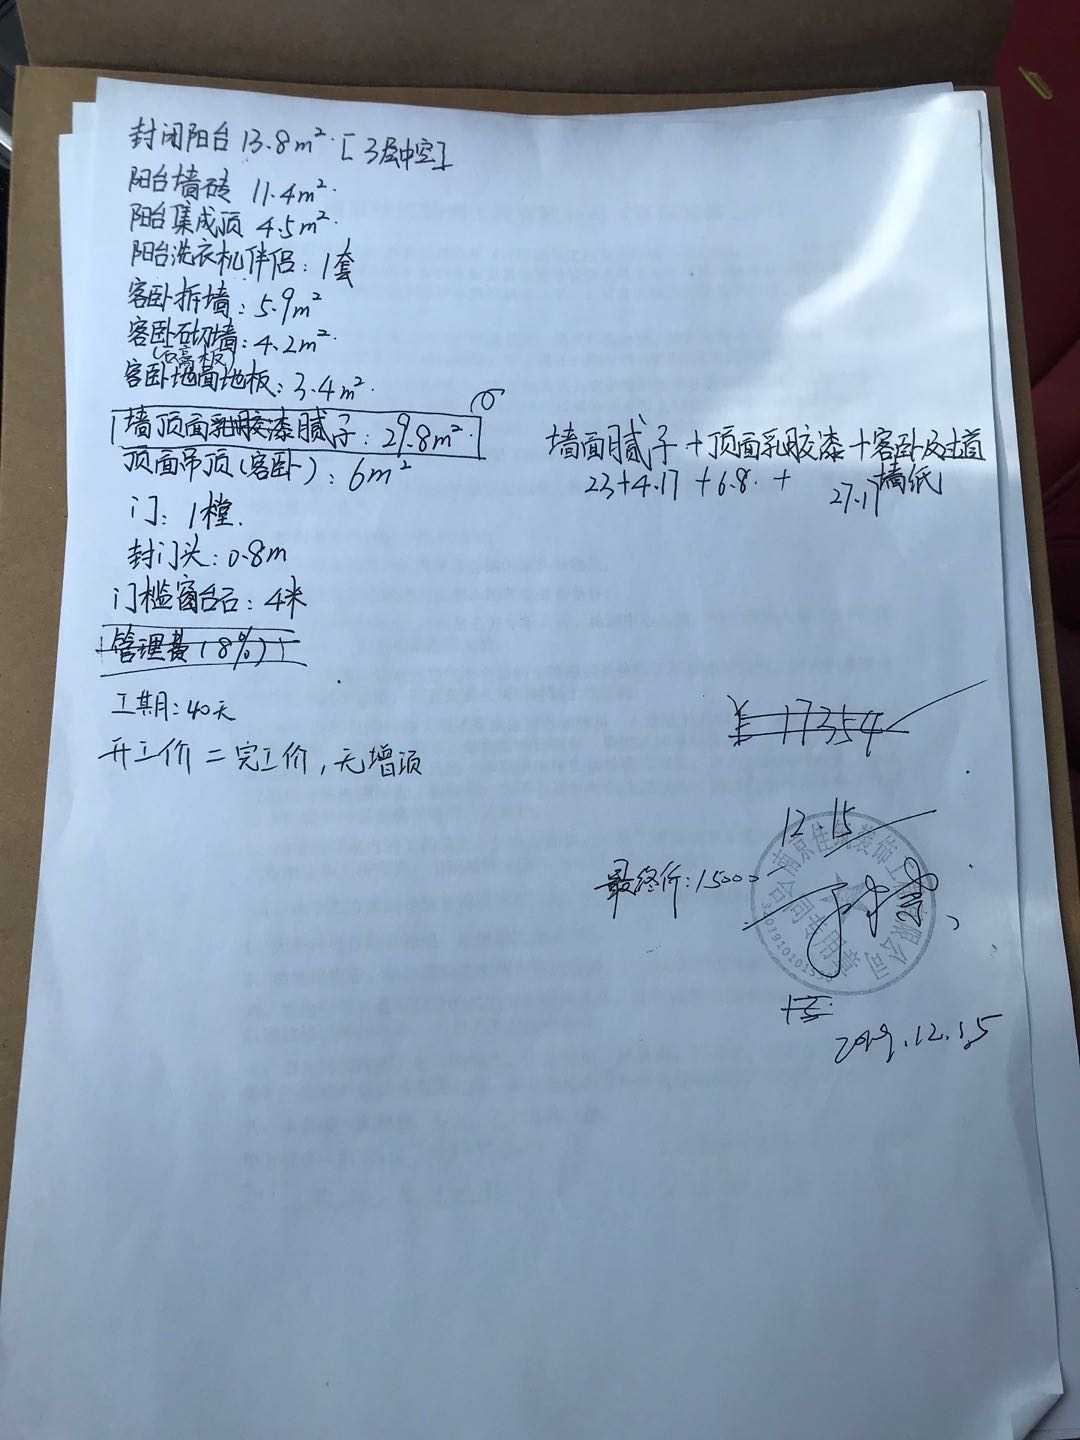 封闭阳台 13.8m². [3层中空]
阳台墙砖 11.4m².
阳台集成顶 4.5m².
阳台洗衣机伴侣: 1套
客卧拆墙: 5.9m²
客卧砌墙: 4.2m².
(石膏板)
客卧地面地板: 3.4m².
墙顶面乳胶漆腻子: 29.8m².
墙面腻子+顶面乳胶漆+客卧及过道
墙纸
23+4.17 +6.8. + 27.17
顶面吊顶(客卧): 6m²
门: 1樘.
封门头: 0.8m
门槛窗台石: 4米
管理费(8%)
工期: 40天
¥17354
开工价=完工价,无增项
12.15
最终价: 15000
南京佳筑装饰工程有限公司
合同专用章
2019.12.15